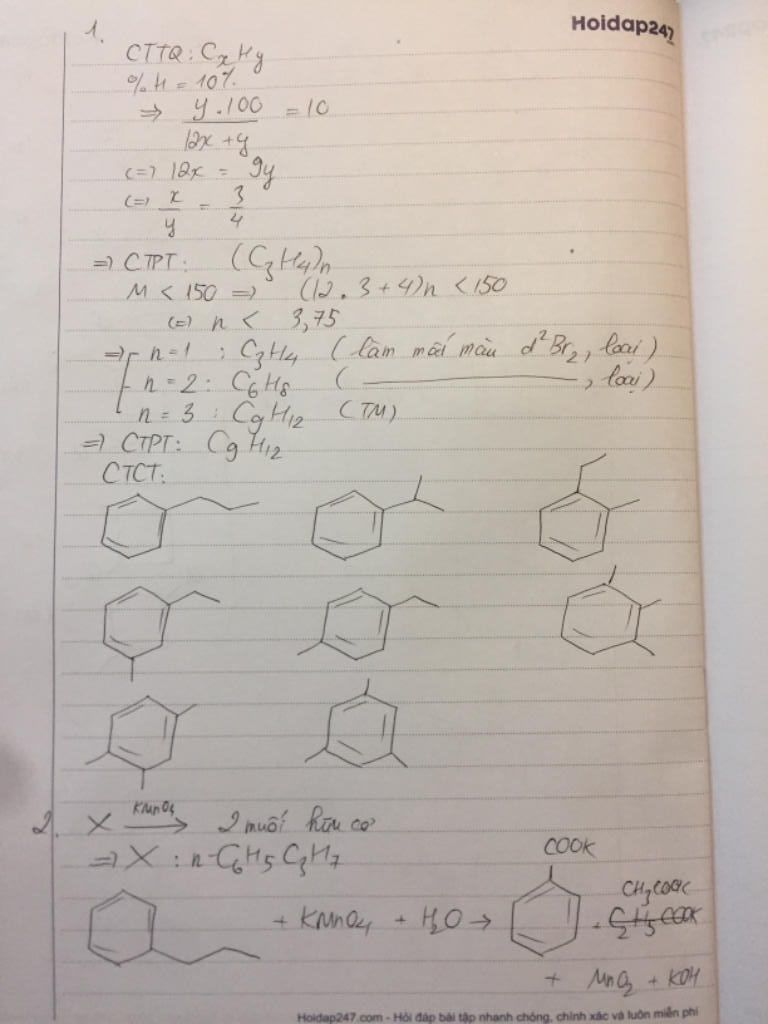 Hoidap247
1.
CTTQ: CxHy
%H = 10%
=> y.100 / 12x + y = 10
<=> 12x = 9y
<=> x/y = 3/4
=> CTPT: (C3H4)n
M < 150 => (12.3+4)n < 150
<=> n < 3,75
=> n = 1 : C3H4 (làm mất màu d²Br2, loại)
n = 2 : C6H8 ( ———— , loại)
n = 3 : C9H12 (TM)
=> CTPT: C9H12
CTCT:
2. X KMnO4 → 2 muối hữu cơ
=> X : n-C6H5C3H7
COOK
CH3COOK
+ KMnO4 + H2O → + C2H5COOK
+ MnO2 + KOH
Hoidap247.com - Hỏi đáp bài tập nhanh chóng, chính xác và luôn miễn phí